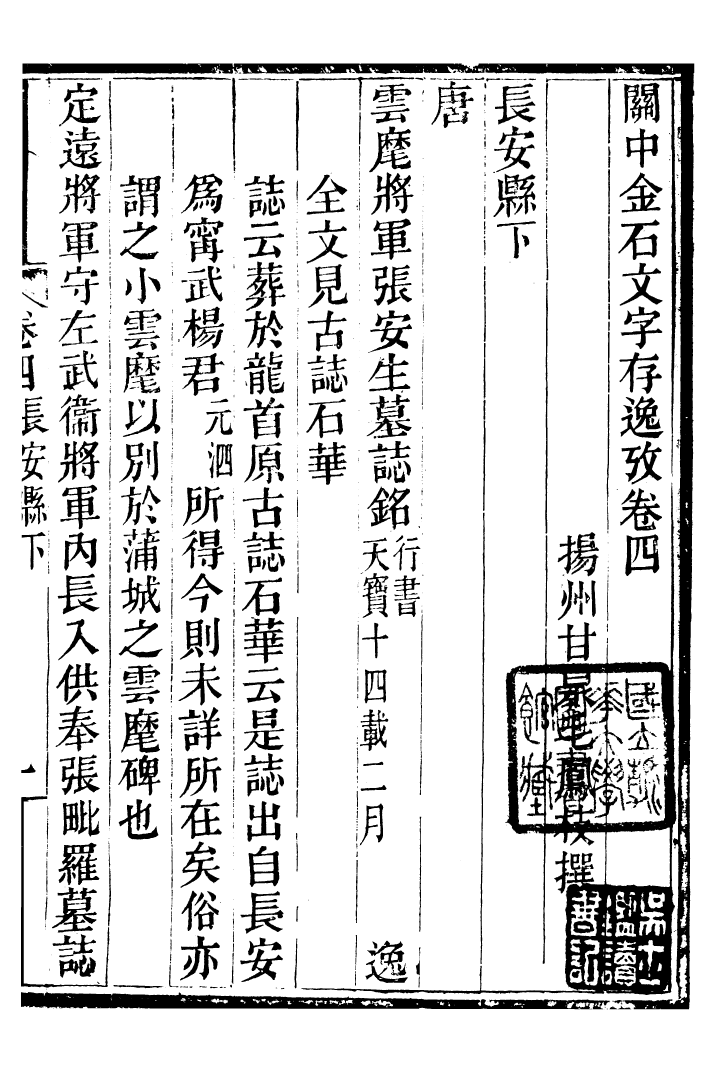 關中金石文字存逸攷卷四
揚州甘泉毛鳳枝撰
長安縣下
唐
雲麾將軍張安生墓誌銘 行書 天寶十四載二月 逸
全文見古誌石華
誌云葬於龍首原古誌石華云是誌出自長安
爲甯武楊君 元泗 所得今則未詳所在矣俗亦
謂之小雲麾以別於蒲城之雲麾碑也
定遠將軍守左武衞將軍內長入供奉張毗羅墓誌
卷四長安縣下 一